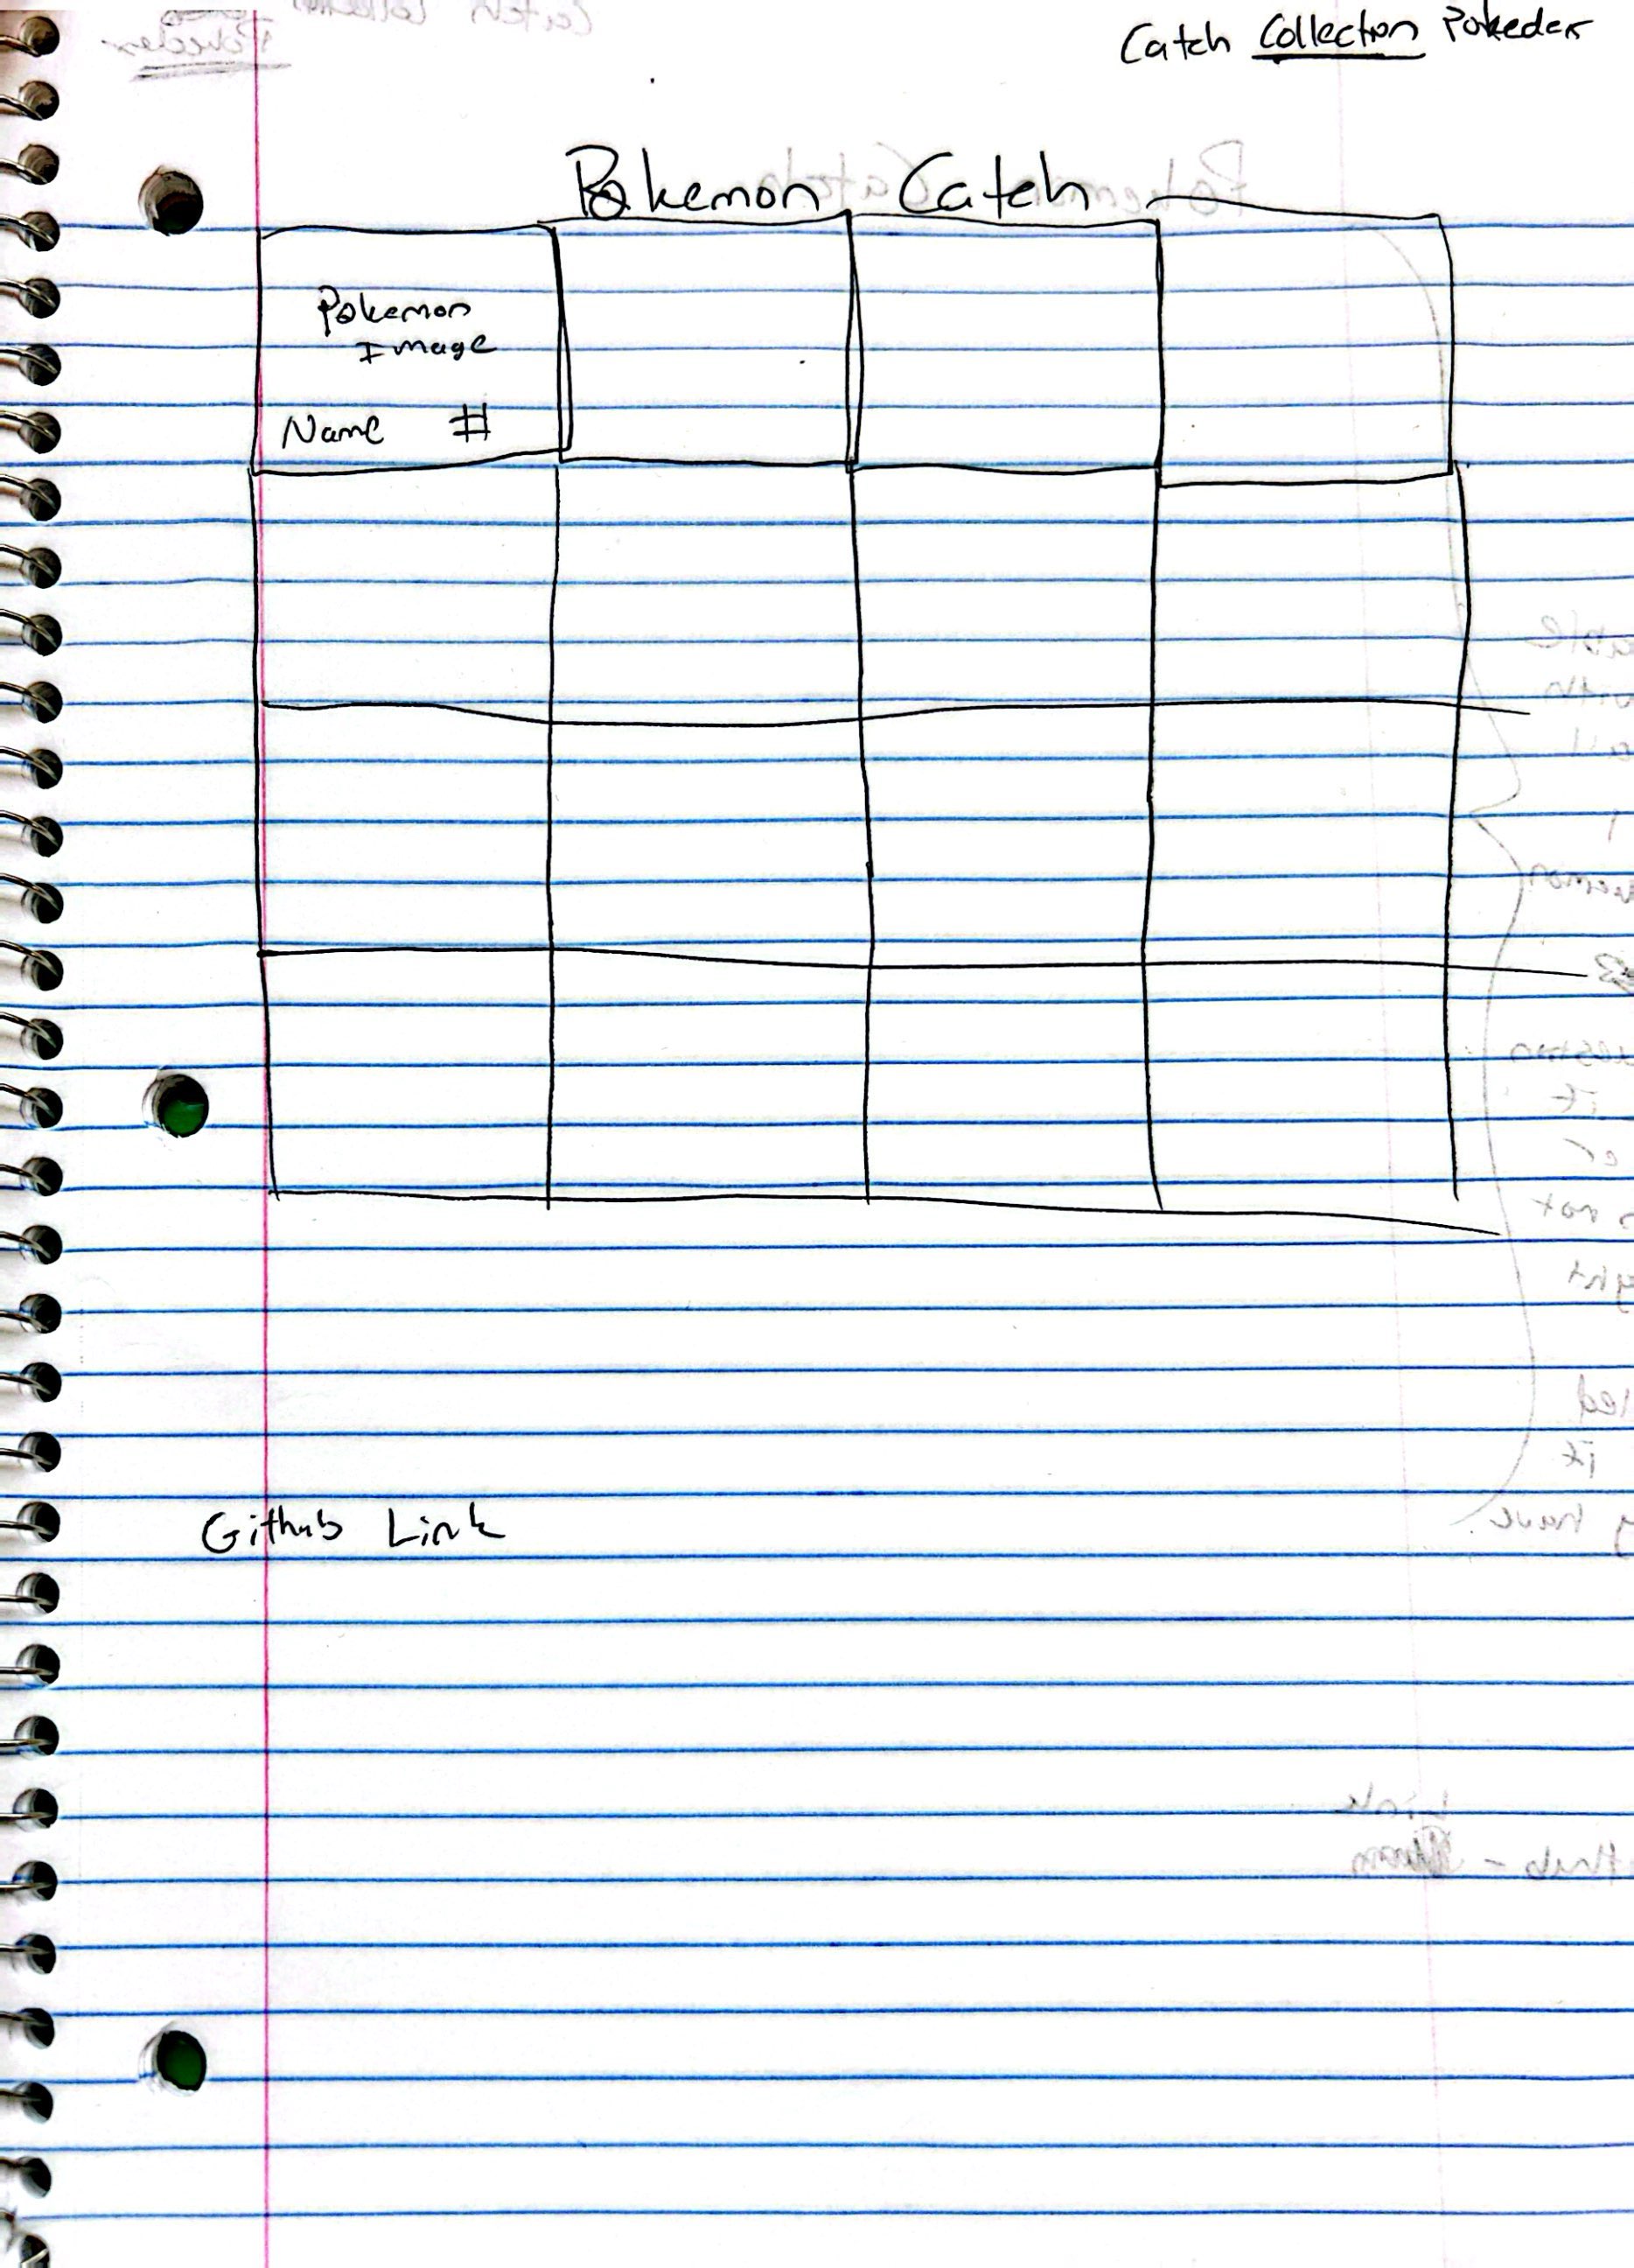 Catch Collection Pokedex
Pokemon Catch
Pokemon
Image
Name #
Github Link